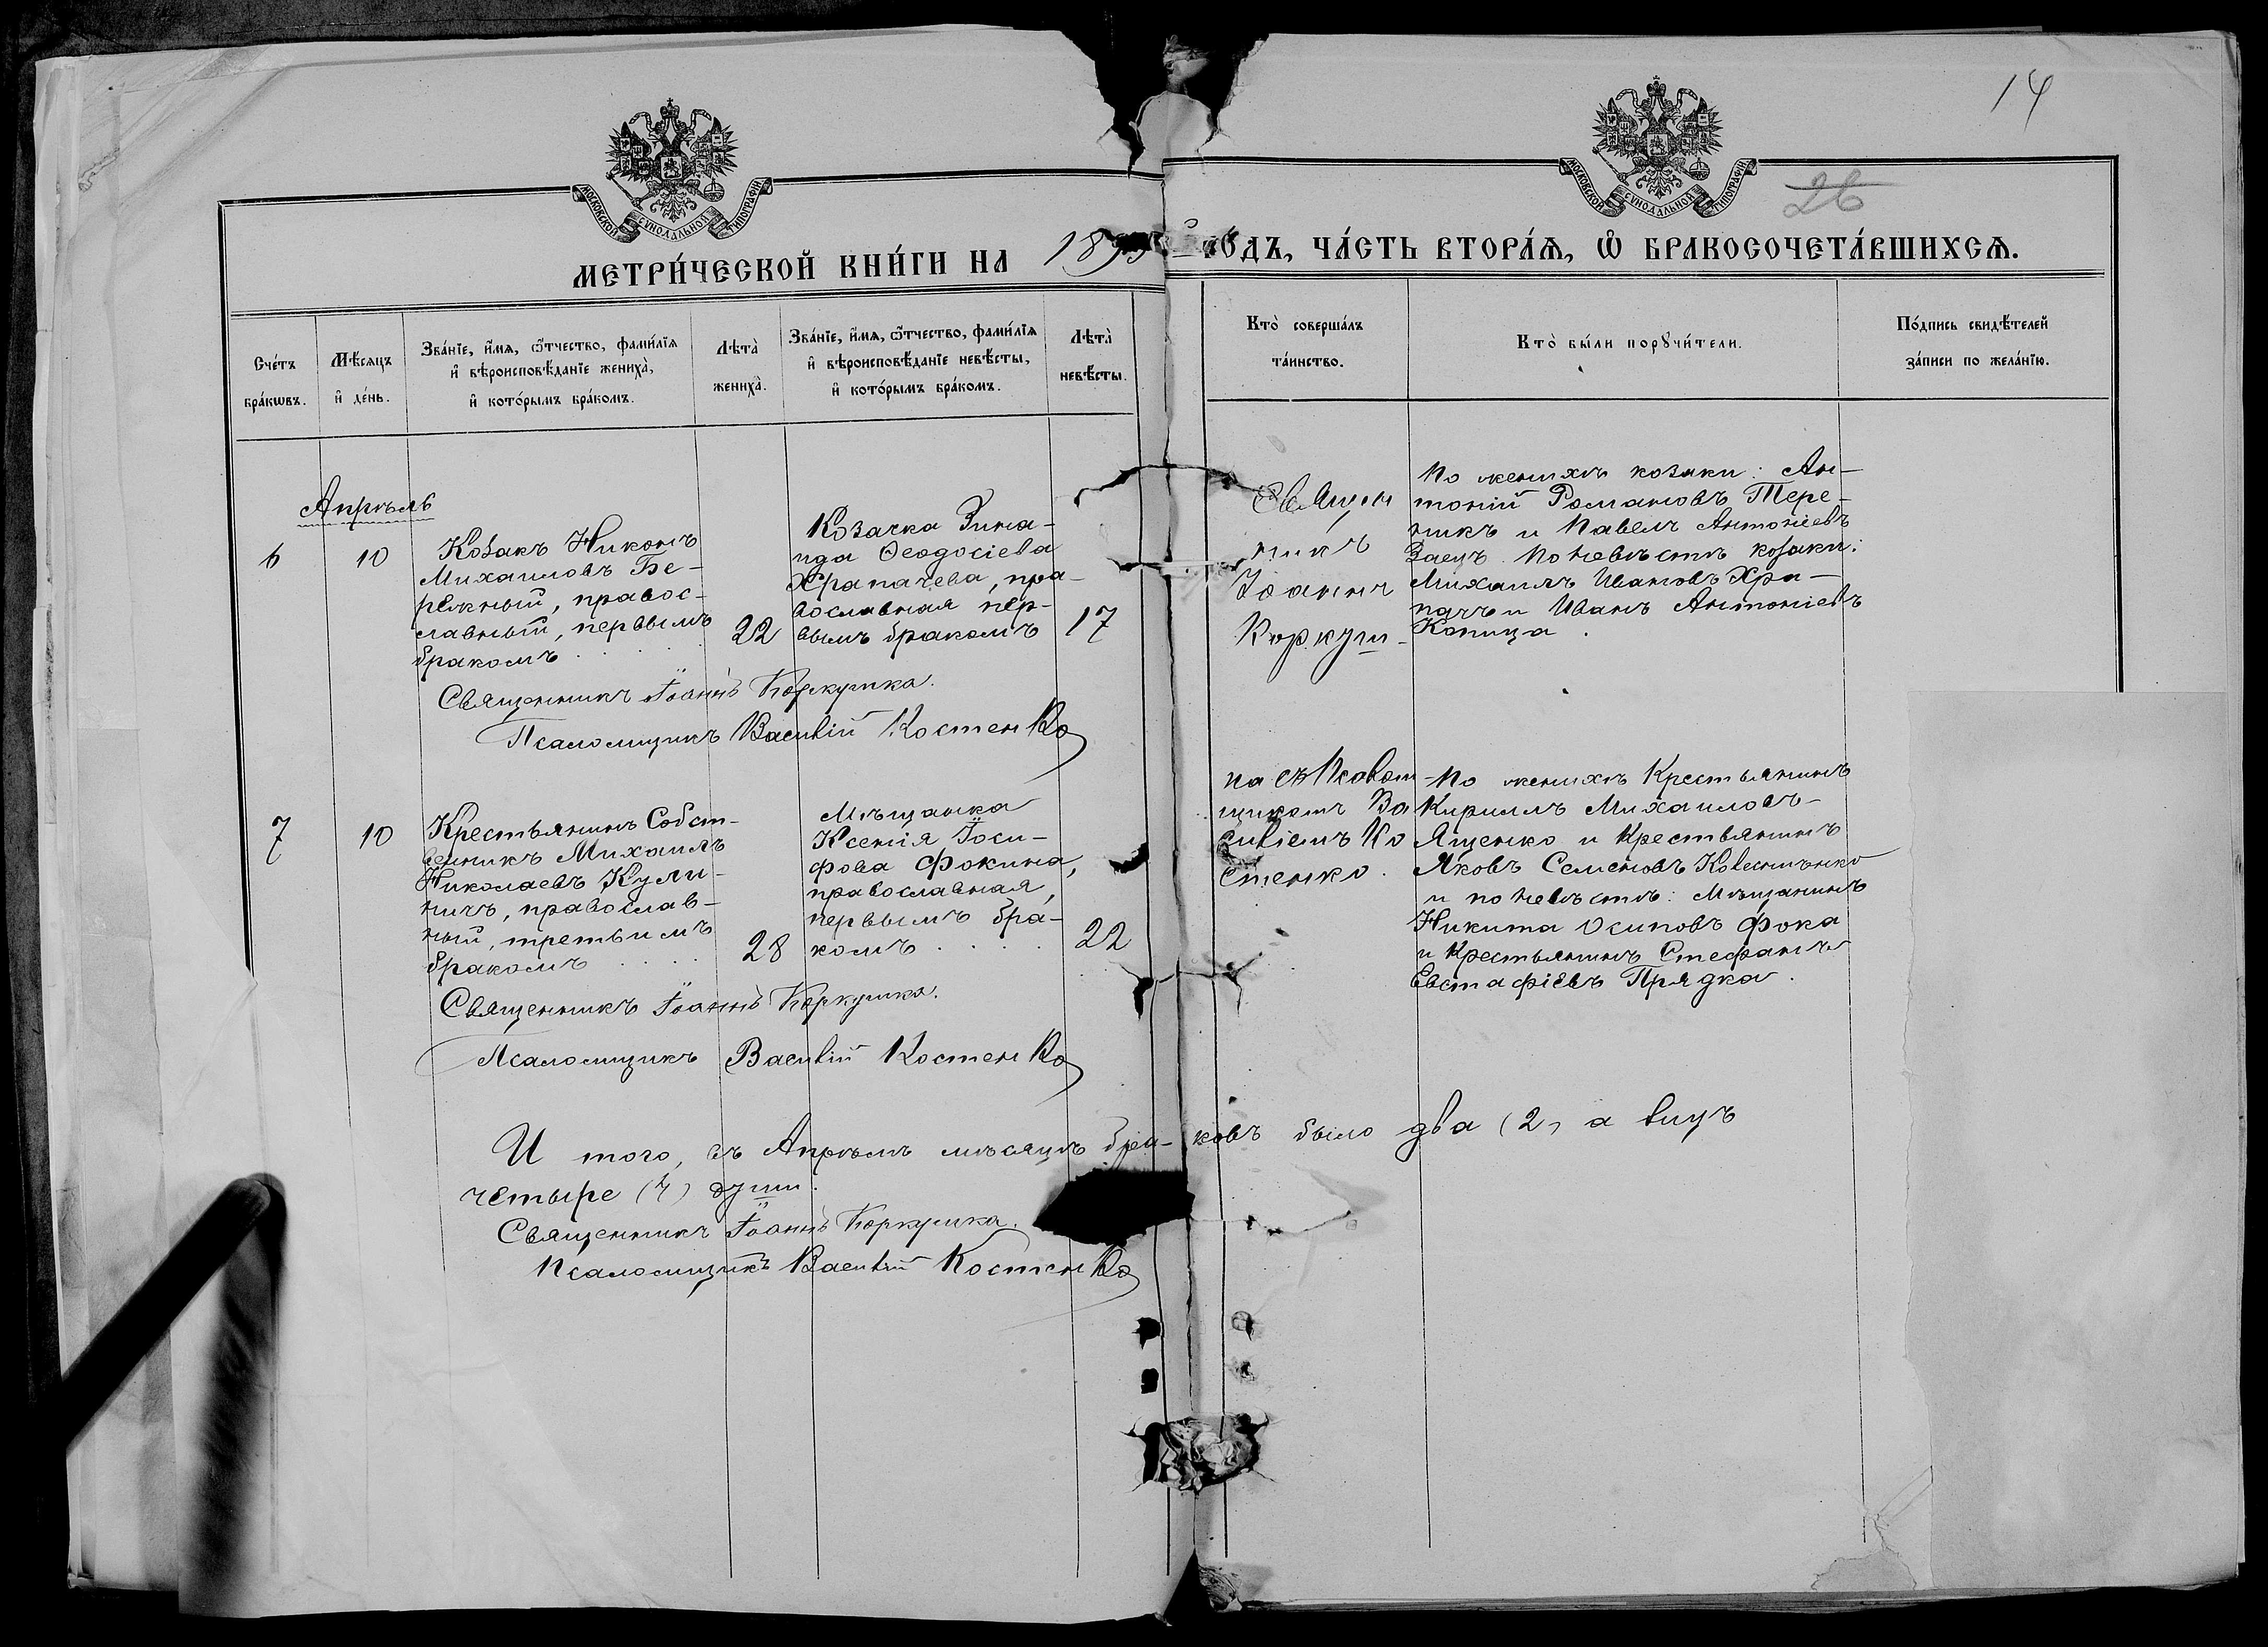 14
26
МОСКОВСКОЙ СѴНОДАЛЬНОЙ ТИПОГРАФІИ
МОСКОВСКОЙ СѴНОДАЛЬНОЙ ТИПОГРАФІИ
МЕТРИ́ЧЕСКОЙ КНИ́ГИ НА 1895 ГОДЪ, ЧА́СТЬ ВТОРА́Ѧ, Ѡ҆ БРАКОСОЧЕТА́ВШИХСѦ.
Сче́тъ бра́кѡвъ.
Мѣ́сяцъ и҆ де́нь.
Зва́нїе, и҆́мѧ, ѻ҆́тчество, фами́лїѧ и҆ вѣроисповѣ́данїе жениха̀, и҆ кото́рымъ бра́комъ.
Лѣта̀ жениха̀.
Зва́нїе, и҆́мѧ, ѻ҆́тчество, фами́лїѧ и҆ вѣроисповѣ́данїе невѣ́сты, и҆ кото́рымъ бра́комъ.
Лѣта̀ невѣ́сты.
Кто̀ соверша́лъ та́инство.
Кто̀ бы́ли порꙋчи́тели.
По́дпись свидѣ́телей за́писи по жела́нїю.
Апрѣль
6
10
Козакъ Никонъ
Михаиловъ Бе-
режный, правос-
лавный, первымъ
бракомъ
22
Козачка Зина-
ида Ѳеодосіева
Храпачева, пра-
вославная пер-
вымъ бракомъ
17
Священ
никъ
Іоаннъ
Коркуш-
По женихѣ козаки: Ан-
тоній Романовъ Тере-
никъ и Павелъ Антоніевъ
Заецъ. По невѣстѣ козаки:
Михаилъ Ивановъ Хра-
пачъ и Иванъ Антоніевъ
Копица.
Священникъ Іоаннъ Коркушка.
Псаломщикъ Василій Костенко
7
10
Крестьянинъ Собст-
венникъ Михаилъ
Николаевъ Кули-
ничъ, православ-
ный, третьимъ
бракомъ
28
Мѣщанка
Ксенія Іоси-
фова Фокина,
православная,
первымъ бра-
комъ
22
ка съ Псалом-
щикомъ Ва
силіемъ Ко
стенко.
По женихѣ Крестьянинъ
Кириллъ Михаиловъ-
Ященко и Крестьянинъ
Яковъ Семеновъ Колесниченко
и по невѣстѣ: Мѣщанинъ
Никита Осиповъ Фока
и Крестьянинъ Стефанъ
Евстафіевъ Прядка.
Священникъ Іоаннъ Коркушка.
Псаломщикъ Василій Костенко
И того, въ Апрѣлѣ мѣсяцѣ бра-ковъ было два (2) а лицъ
четыре (4) души.
Священникъ Іоаннъ Коркушка.
Псаломщикъ Василій Костенко